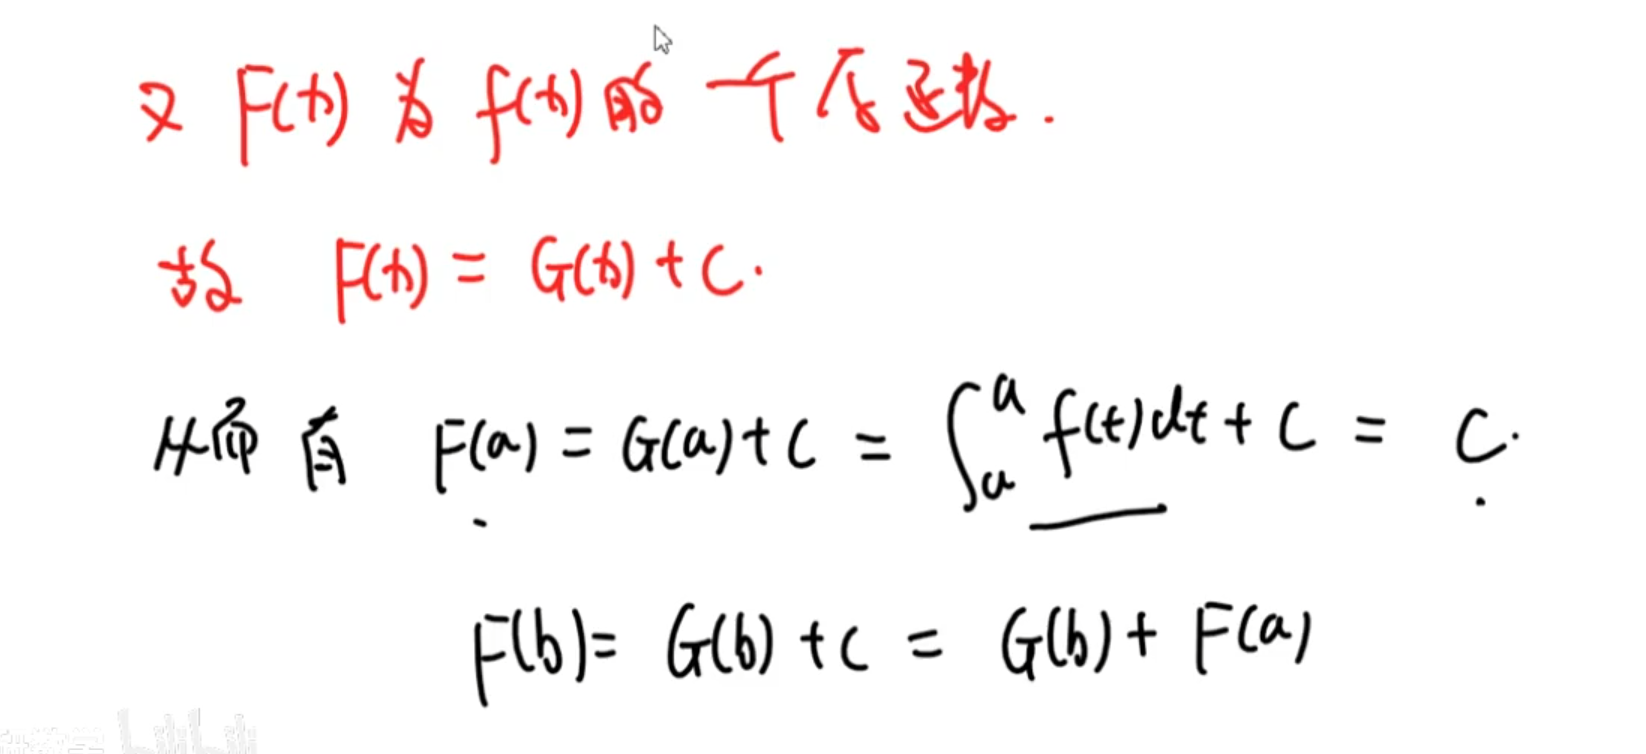 又 F(x) 为 f(x) 的 一个原函数.
故 F(x) = G(x) + C.
从而有 F(a) = G(a) + C = ∫ₐᵃ f(t)dt + C = C.
F(b) = G(b) + C = G(b) + F(a)